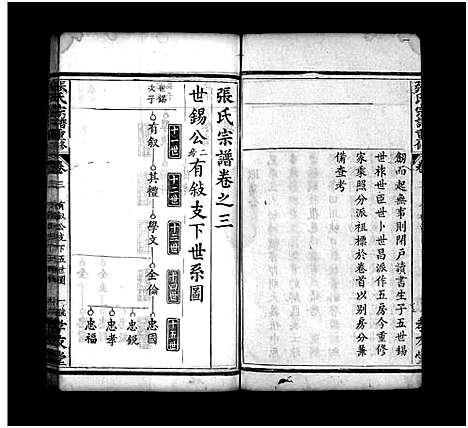 劒而起無事則閉戶讀書生子五世錫
世祚世臣世卜世昌派作五房今重修
家乘照分派祖標於卷首以別房分兼
備查考
張氏宗譜卷之三
世錫公二房有敍支下世系圖
十一世
十二世
十三世
十四世
十五世
世錫次子
有叙
其禮
學文
全倫
忠國
忠鋭
忠孝
忠福
張氏宗譜重修
卷三
有叙公支下五世圖